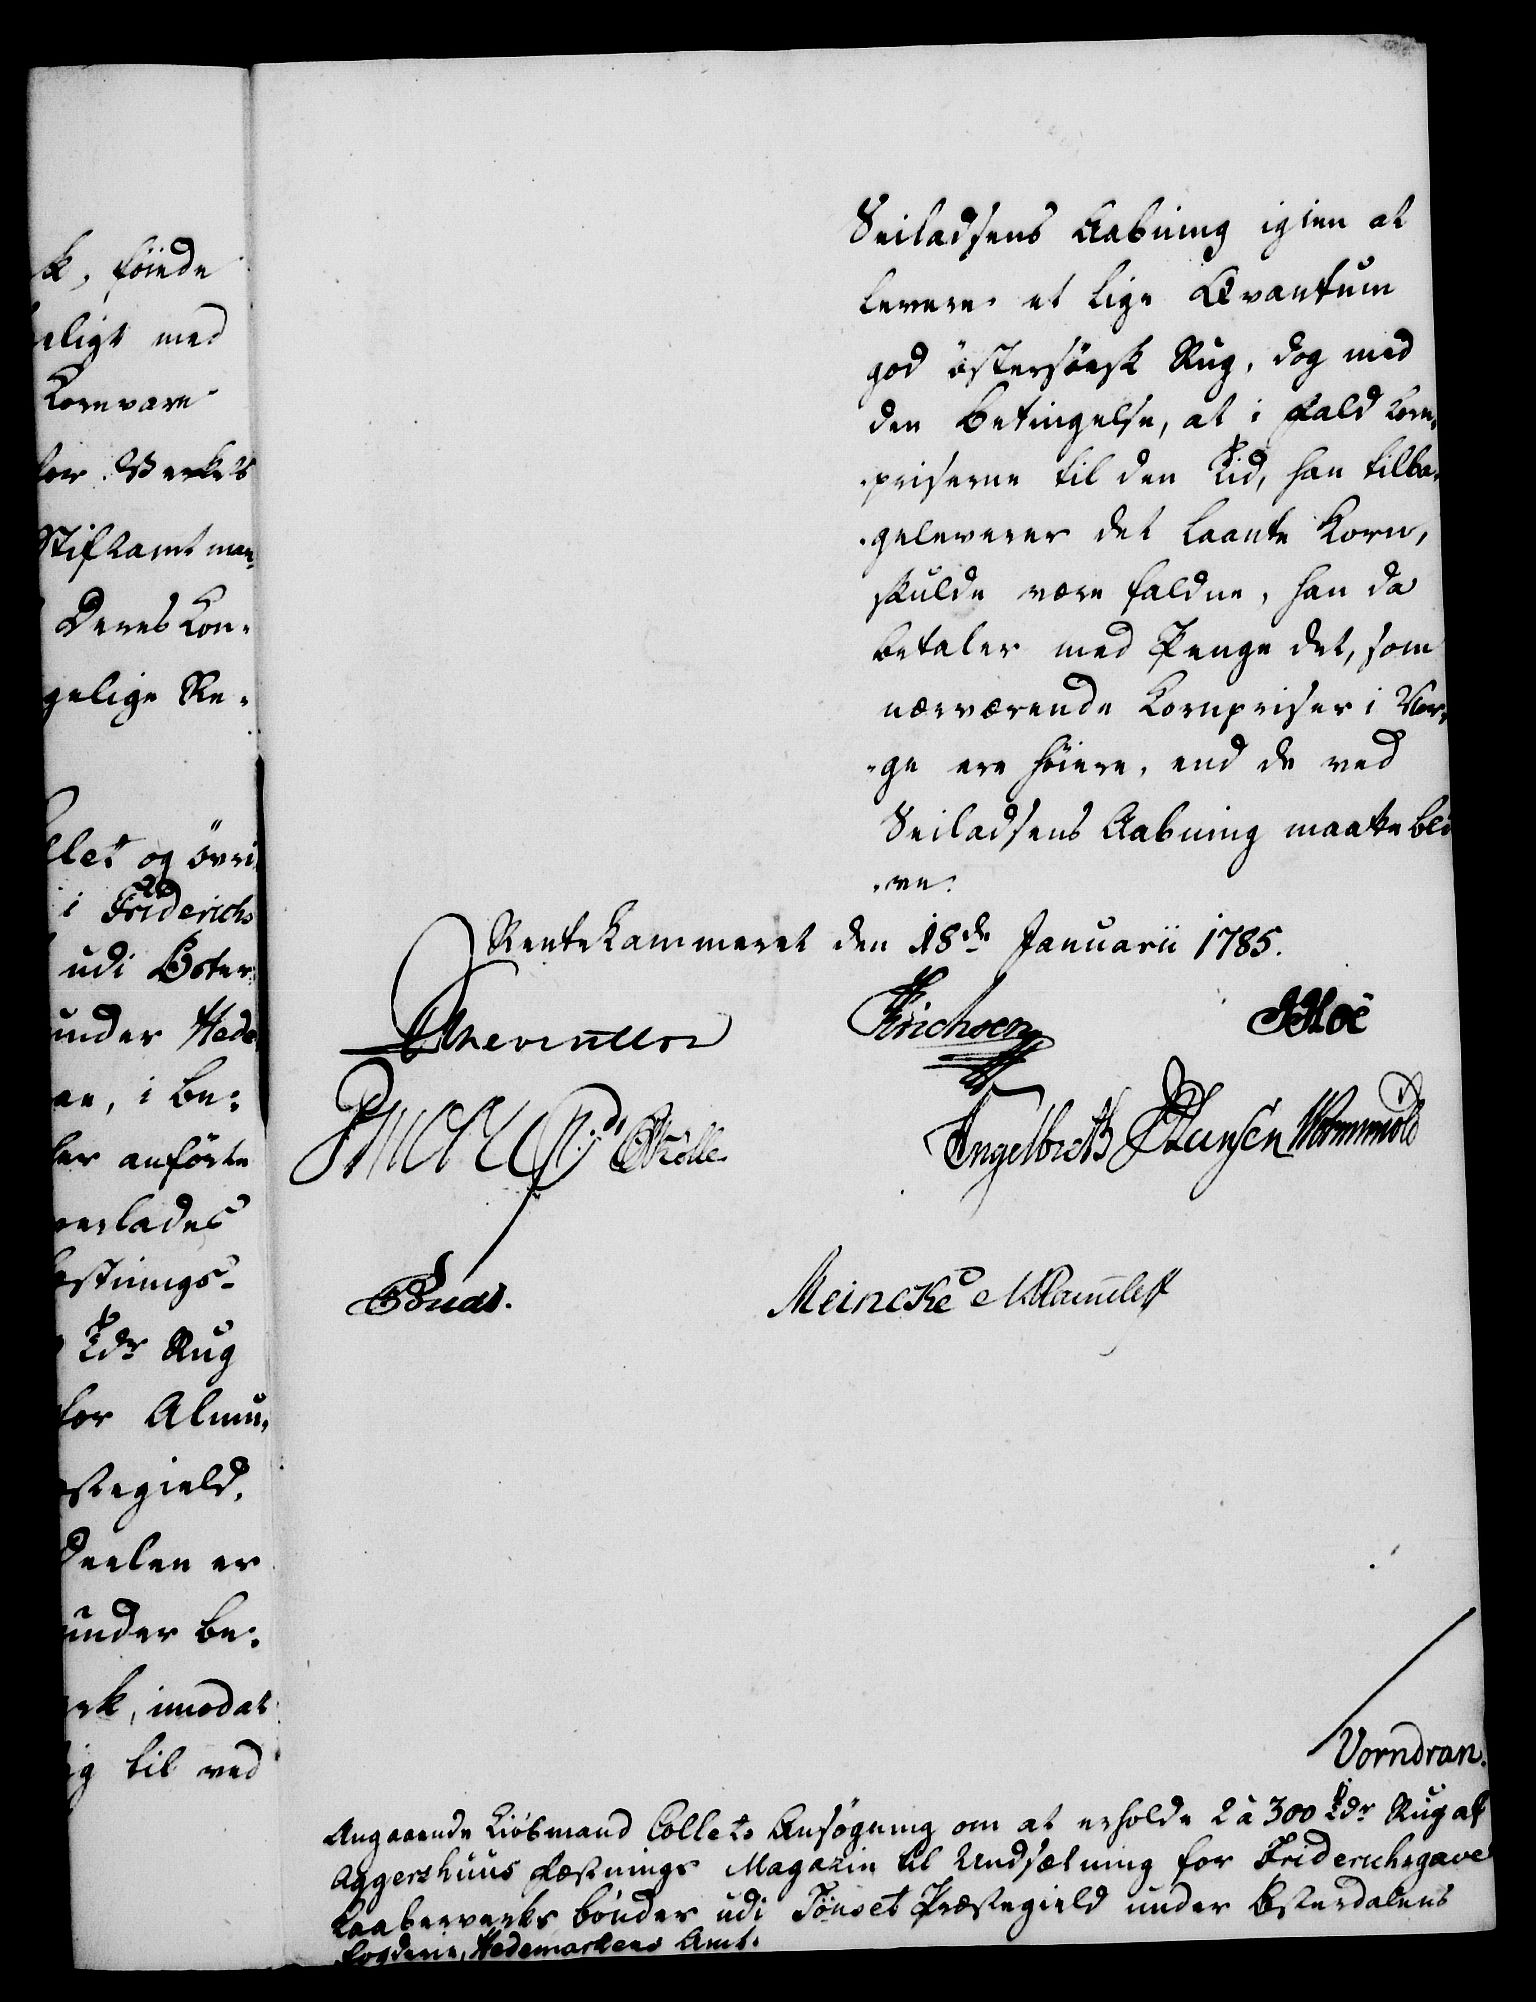 k, föiede
eligt med
Kornvare
for Værkets
Stiftamtman„
Deres Kon„
gelige Re„
llet og övri
i Friderichs
udi Öster„
under Hede
en, i be„
her anförte
overlades
estnings-
Tdr Rug
for Almu„
stegield,
deelen er
under be„
erk, imodat
ig til ved
Seiladsens Aabning igien at
levere et lige Qvantum
god östersöesk Rug, dog med
den Betingelse, at i fald Korn„
„priserne til den Tid, han tilba„
„geleverer det laante Korn,
skulde være faldne, han da
betaler med Penge det, som
nærværende Kornpriser i Nor„
„ge ere höiere, end de ved
Seiladsens Aabning maatte bli
„ve.
RenteKammeret den 18de Januarii 1785.
Erichsen
Engelbreth JHansen Wormskiold
Meincke Rammeleff
Vorndran.
Angaaende Kiöbmand Collets Ansögning om at erholde 2 à 300 Tdr Rug af
Aggershuus Fæstnings Magazin til Undsætning for Friderichsgaves
Kaaberverks bönder udi Tönset Præstegield under Österdalens
Fogderie, Hedemarkens Amt.